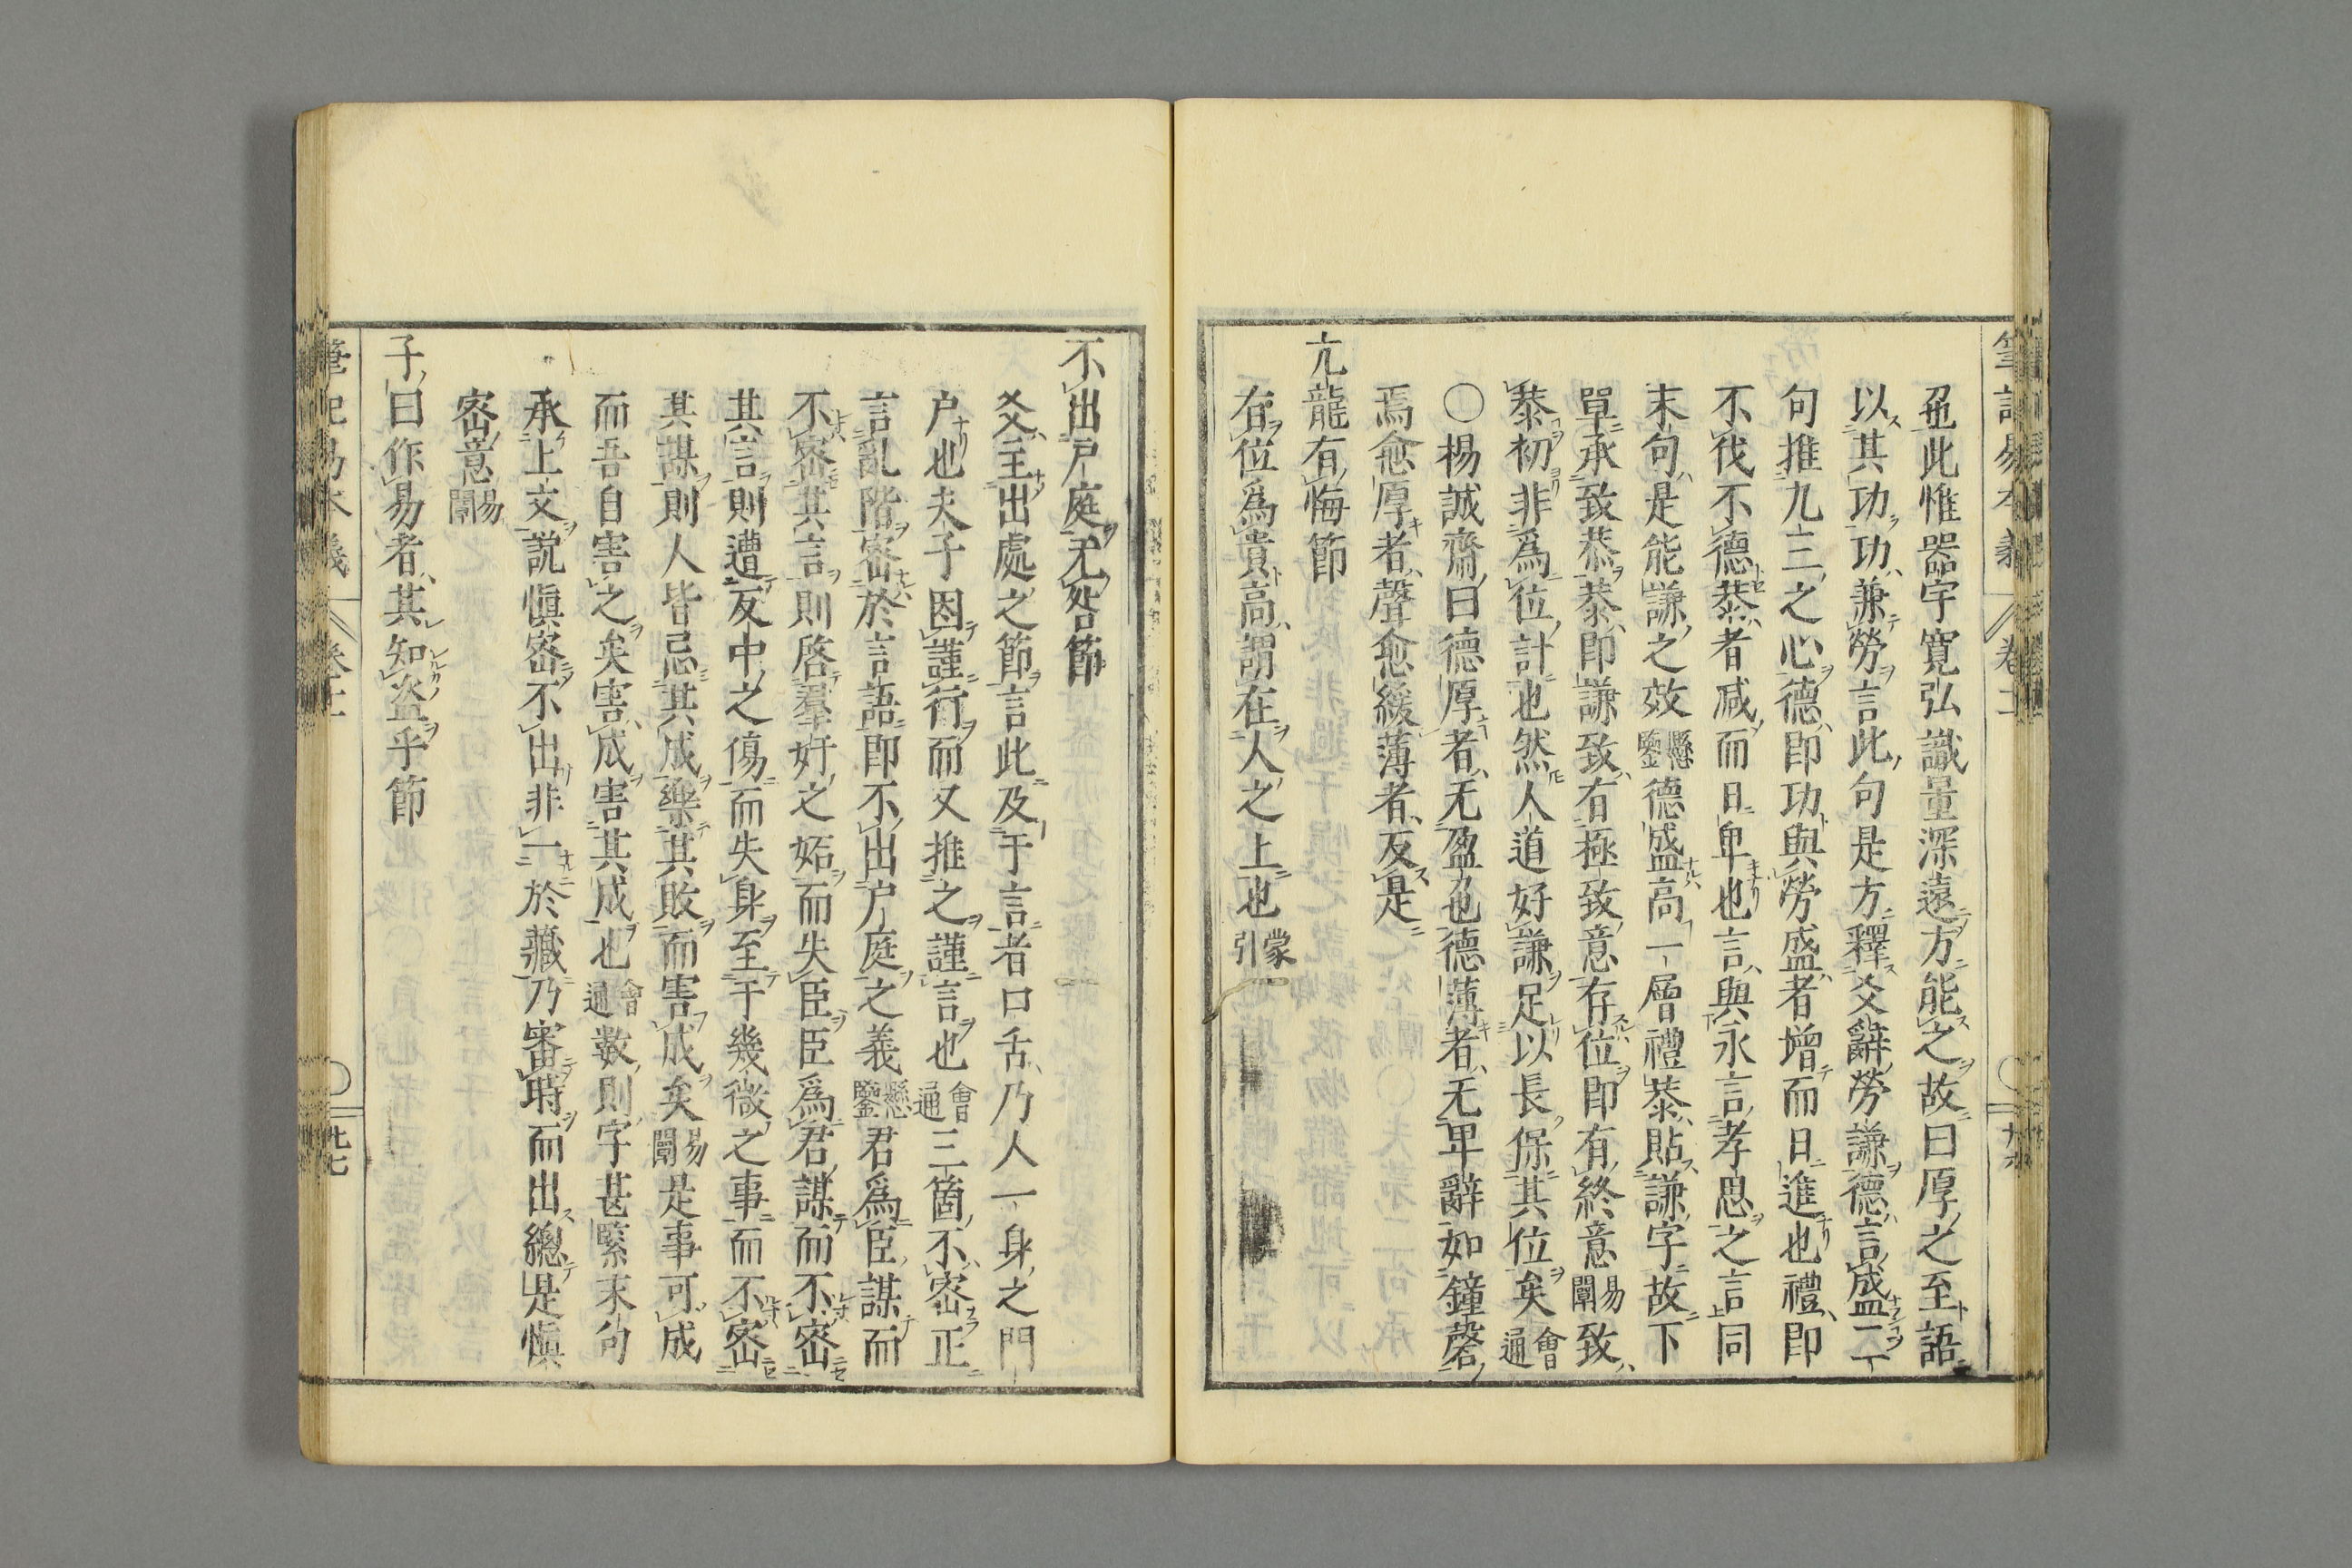 筆記易本義 卷十二
㽞此惟器宇寛弘識量深遠方能之故曰厚之至語
以其功功兼勞言此句是方釋爻辭勞謙德言盛二
句推九三之心德即功與勞盛者增而日進也禮即
不伐不德㳟者减而日卑也言與永言孝思之言同
末句是能謙之效懸鑒德盛高一層禮㳟貼謙字故下
單承致恭㳟即謙致有極致意存位即有終意易闡致
㳟初非爲位計也然人道好謙足以長保其位矣會通
〇楊誠齋曰德厚者无盈色德薄者无卑辭如鐘磬
焉愈厚者聲愈緩薄者反是
亢龍有悔節
有位爲貴高謂在人之上也蒙引
不出戸庭无咎節
爻主出處之節言此及于言者口舌乃人一身之門
户也夫子因謹行而又推之謹言也會通三箇不密正
言亂階密於言語即不出户庭之義懸鑒君爲臣謀而
不密其言則啓羣奸之妬而失臣臣爲君謀而不密
其言則遭反中之傷而失身至于幾微之事而不密
其謀則人皆忌其成樂其敗而害成矣易闡是事可成
而吾自害之矣害成害其成也會通數則字甚緊末句
承上文説愼密不出非一於藏乃審時而出總是愼
密意易闡
子曰作易者其知盜乎節
筆記易本義 卷十二 廿七